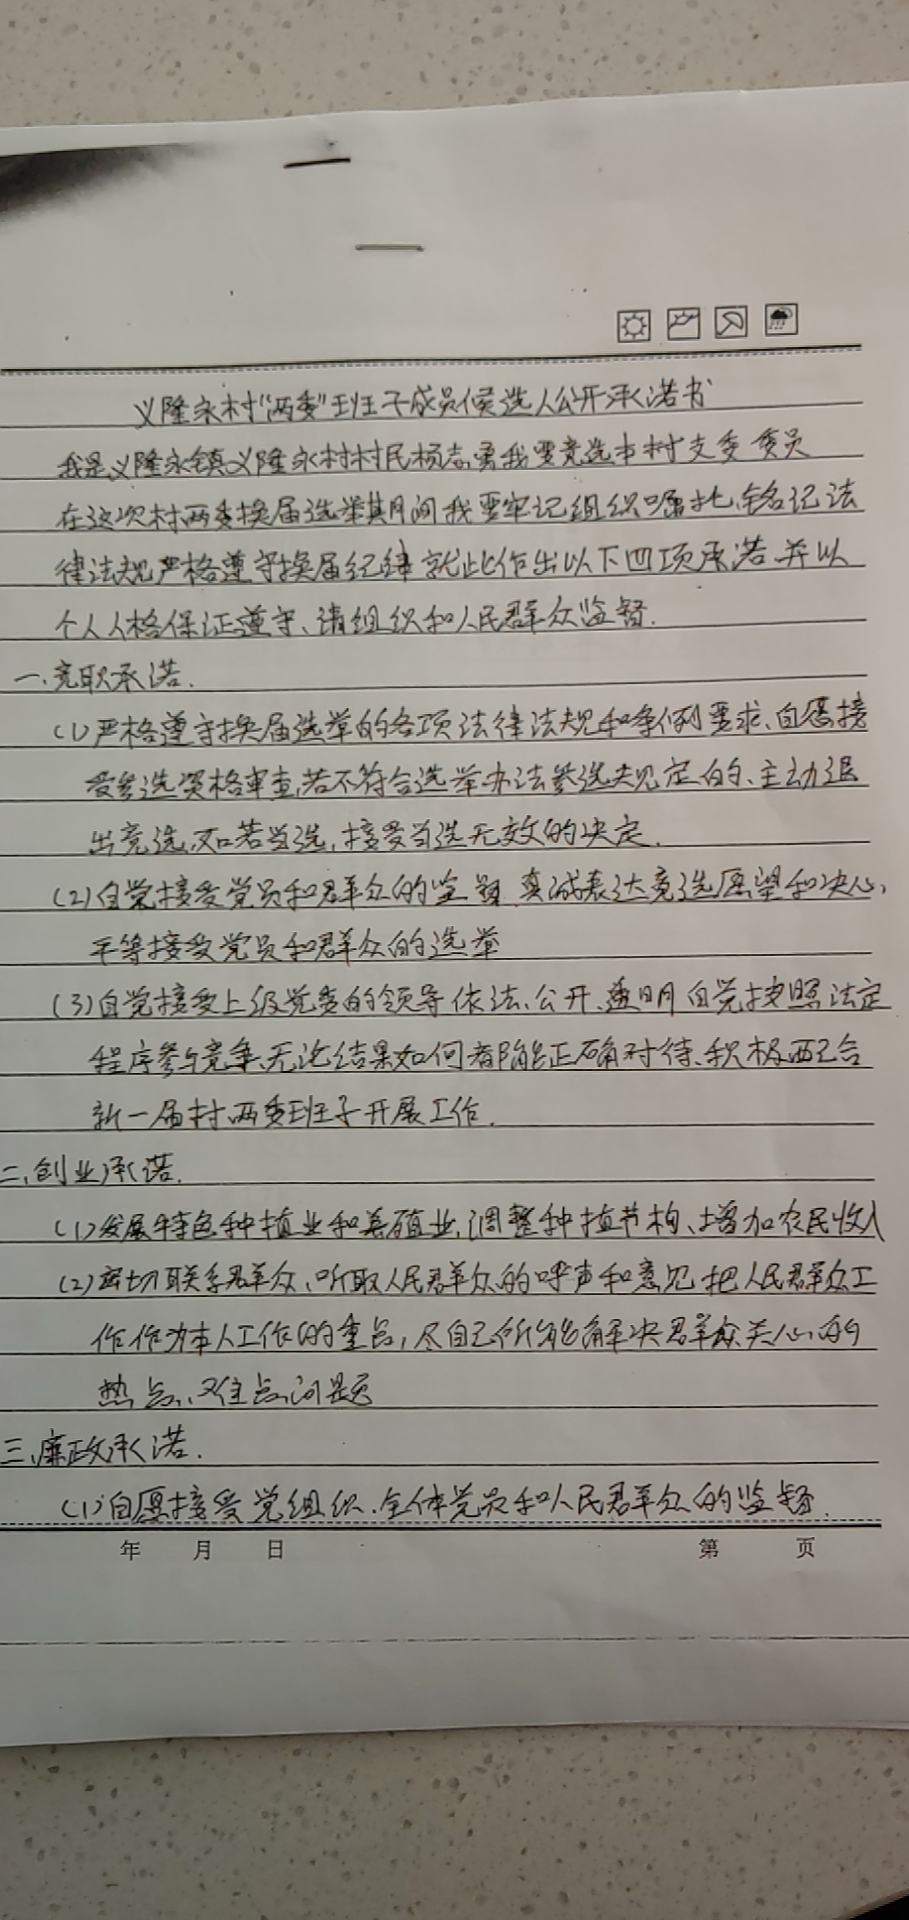 义隆永村“两委”班子成员候选人公开承诺书
我是义隆永镇义隆永村村民杨志勇我要竞选本村支委委员
在这次村两委换届选举期间我要牢记组织嘱托、铭记法
律法规严格遵守换届纪律就此作出以下四项承诺并以
个人人格保证遵守、请组织和人民群众监督.
一、竞职承诺.
(1)严格遵守换届选举的各项法律法规和条例要求、自愿接
受参选资格审查,若不符合选举办法参选规定的、主动退
出竞选,如若当选,接受当选无效的决定.
(2)自觉接受党员和群众的监督,真诚表达竞选愿望和决心,
平等接受党员和群众的选举
(3)自觉接受上级党委的领导依法、公开、透明自觉按照法定
程序参与竞争、无论结果如何都能正确对待、积极配合
新一届村两委班子开展工作.
二、创业承诺.
(1)发展特色种植业和养殖业,调整种植节构、增加农民收入
(2)密切联系群众、听取人民群众的呼声和意见把人民群众工
作作为本人工作的重点,尽自己所能解决群众关心的
热点、难点问题
三、廉政承诺.
(1)自愿接受党组织、全体党员和人民群众的监督.
年 月 日 第 页